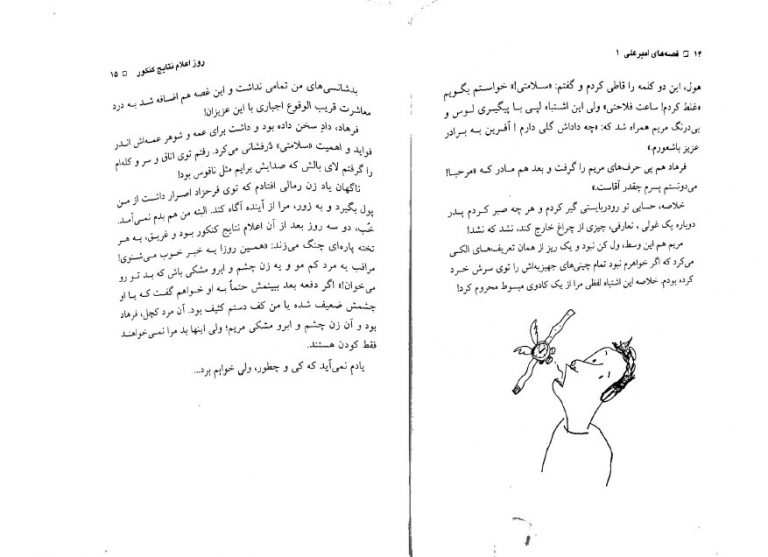 ۱۴ □ قصه‌های امیرعلی ۱
هول، این دو کلمه را قاطی کردم و گفتم: «سلامتی!» خواستم بگویم
«غلط کردم! ساعت فلاحتی» ولی این اشتباه لپی با پیگیری لوس و
بی‌درنگ مریم همراه شد که: «چه داداش گلی دارم! آفرین به برادر
عزیز باشعورم.»
فرهاد هم پی حرف‌های مریم را گرفت و بعد هم مادر که «مرحبا!
می‌دونستم پسرم چقدر آقاست.»
خلاصه، حسابی تو رودربایستی گیر کردم و هر چه صبر کردم پدر
دوباره یک غولی، تعارفی، چیزی از چراغ خارج کند، نشد که نشد!
مریم هم این وسط، ول کن نبود و یک ریز از همان تعریف‌های الکی
می‌کرد که اگر خواهرم نبود تمام چینی‌های جهیزیه‌اش را توی سرش خرد
کرده بودم. خلاصه این اشتباه لفظی مرا از یک کادوی مبسوط محروم کرد!
روز اعلام نتایج کنکور □ ۱۵
بدشانسی‌های من تمامی نداشت و این غصه هم اضافه شد به درد
معاشرت قریب الوقوع اجباری با این عزیزان!
فرهاد، دادِ سخن داده بود و داشت برای عمه و شوهر عمه‌اش اندر
فواید و اهمیت «سلامتی» دُرفشانی می‌کرد. رفتم توی اتاق و سر و کله‌ام
را گرفتم لای بالش که صدایش برایم مثل ناقوس بود!
ناگهان یاد زن رمالی افتادم که توی فرحزاد اصرار داشت از من
پول بگیرد و به زور، مرا از آینده آگاه کند. البته من هم بدم نمی‌آمد.
خُب، دو سه روز بعد از آن اعلام نتایج کنکور بود و غریق، به هر
تخته پاره‌ای چنگ می‌زند: «همین روزا یه خبر خوب می‌شنوی!
مراقب یه مرد کم مو و یه زن چشم و ابرو مشکی باش که بد تو رو
می‌خوان!» اگر دفعه بعد ببینمش حتماً به او خواهم گفت که یا او
چشمش ضعیف شده یا من کف دستم کثیف بود. آن مرد کچل، فرهاد
بود و آن زن چشم و ابرو مشکی مریم! ولی اینها بد مرا نمی‌خواهند
فقط کودن هستند.
یادم نمی‌آید که کی و چطور، ولی خوابم برد...